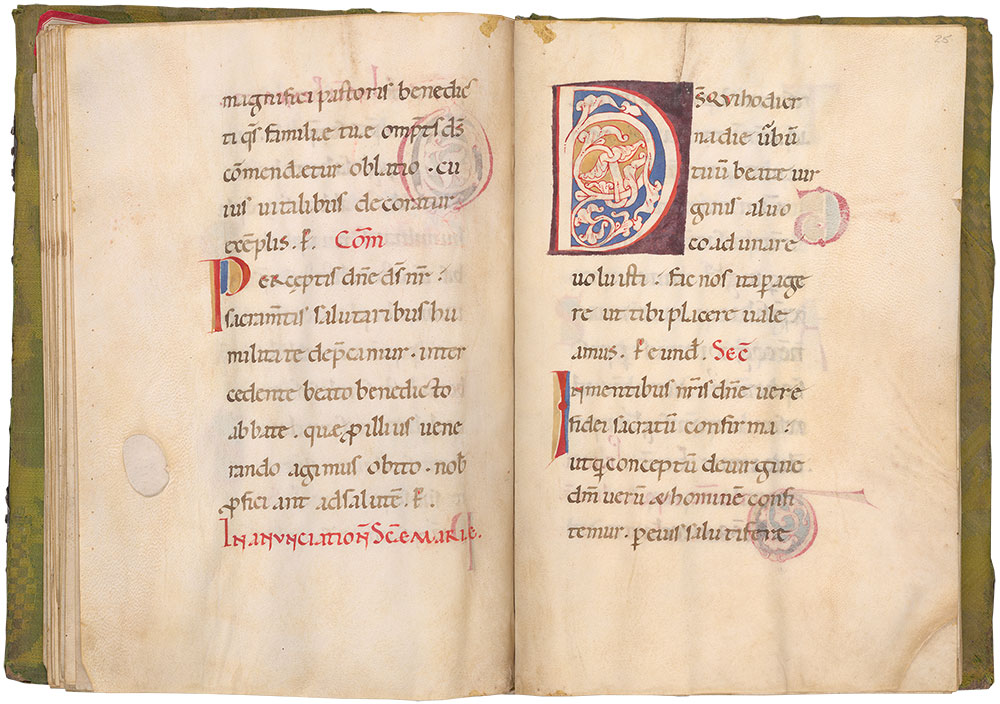 magnifici pastoris benedic
ti qs̄ familiæ tuę omp̄ts ds̄
cōmendætur oblatio · cu
ius vitalibus decoratur
exēplis. ꝑ. Cōm
Perceptis dn̄e ds̄ nr̄ ·
sacram̄tis salutaribus hu
militate dep̄camur · inter
cedente beato benedicto
abbate · quæ ꝓ illius vene
rando agimus obito · nob̄
ꝓficiant ad salutē. ꝑ.
In anunciationē Scē Marię.
25
Ds̄ qui hodier
na die v̄bū
tuū beatę vir
ginis aluo
coadunare
voluisti · fac nos ita ꝑage
re ut tibi placere vale
amus. ꝑ eund̄ Sec̄
In mentibus nr̄is dn̄e vere
fidei sacratū confirma ·
ut qi conceptū de virgine
dm̄ verū & hominē confi
temur · ꝑ eius salutiferę